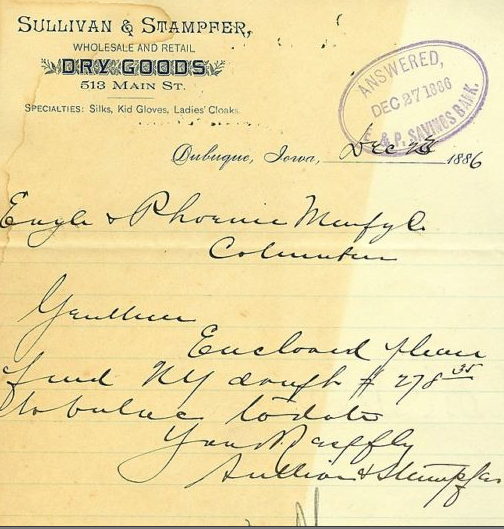 SULLIVAN & STAMPFER,
WHOLESALE AND RETAIL
DRY GOODS
513 MAIN ST.
SPECIALTIES: Silks, Kid Gloves, Ladies' Cloaks.
ANSWERED,
DEC 27 1886
& P. SAVINGS BANK.
Dubuque, Iowa, Dec 1886
Eagle & Phoenix Manfg Co
Columbus
Gentlemen
Enclosed please
find NY draft # 278 35
to balance to date
Yours Respfly
Sullivan & Stampfer